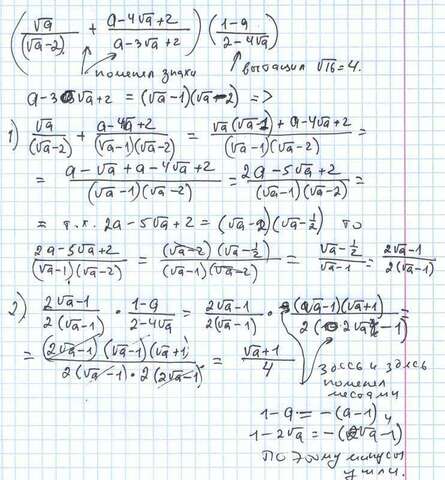 (√a/(√a-2) + (a-4√a+2)/(a-3√a+2)) ((1-a)/(2-4√a))
поменял знаки
вытащил √16=4.
a-3√a+2 = (√a-1)(√a-2) =>
1) √a/(√a-2) + (a-4√a+2)/((√a-1)(√a-2)) = (√a(√a-1)+a-4√a+2)/((√a-1)(√a-2)) =
= (a-√a+a-4√a+2)/((√a-1)(√a-2)) = (2a-5√a+2)/((√a-1)(√a-2)) =
= т.к. 2a-5√a+2 = (√a-2)(√a-1/2) то
(2a-5√a+2)/((√a-1)(√a-2)) = ((√a-2)(√a-1/2))/((√a-1)(√a-2)) = (√a-1/2)/(√a-1) = (2√a-1)/(2(√a-1))
2) (2√a-1)/(2(√a-1)) · (1-a)/(2-4√a) = (2√a-1)/(2(√a-1)) · ((√a-1)(√a+1))/(2(2√a-1)) =
= ((2√a-1)(√a-1)(√a+1))/(2(√a-1)·2(2√a-1)) = (√a+1)/4
здесь и здесь
поменял
местами
1-a = -(a-1)
1-2√a = -(2√a-1)
поэтому минусы
ушли.